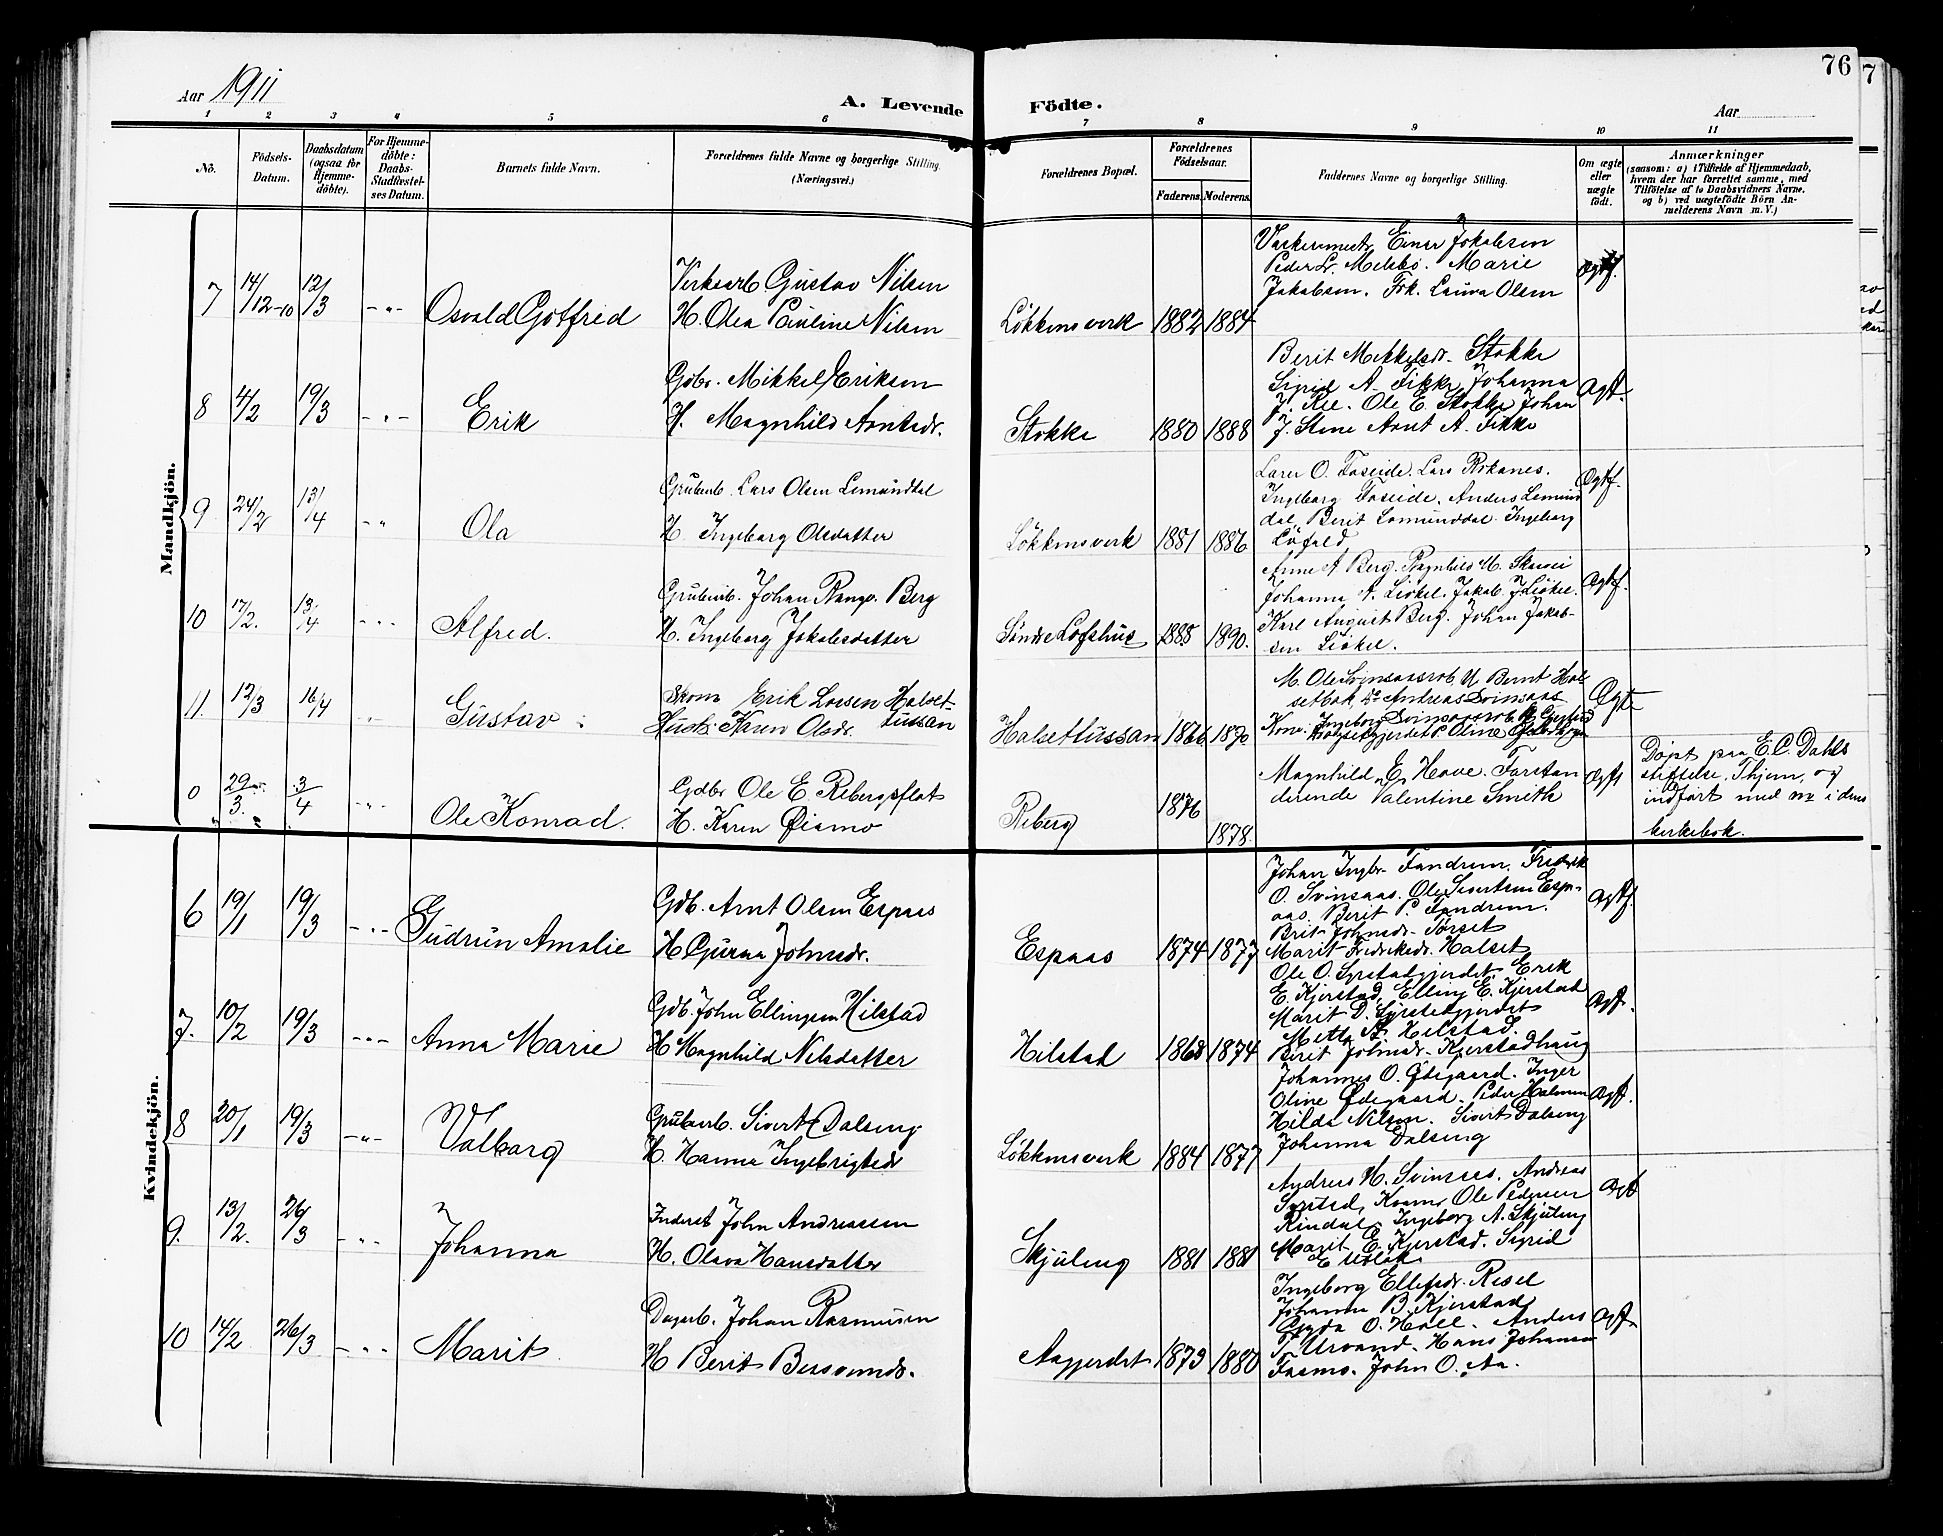 76
7
Aar 1911
A. Levende
Födte.
Aar
1 2 3 4 5 6 7 8 9 10 11
No.
Födsels-Datum.
Daabsdatum (ogsaa for Hjemme-döbte).
For Hjemme-döbte: Daabs-Stadfæstel-ses Datum.
Barnets fulde Navn.
Forældrenes fulde Navne og borgerlige Stilling.
(Næringsvei.)
Forældrenes Bopæl.
Forældrenes Födselsaar.
Faderens. Moderens.
Faddernes Navne og borgerlige Stilling.
Om ægte eller uægte födt.
Anmærkninger
(saasom: a) i Tilfælde af Hjemmedaab,
hvem der har forrettet samme, med
Tilföielse af to Daabsvidners Navne.
og b) ved uægtefödte Börn An-
melderens Navn m. V.)
Mandkjön.
7 14/12-10 12/3 -"- Osvald Gotfred
Verksarb Gustav Nilsen
H. Olea Pauline Nilsen
Løkkensverk 1882 1884
Einar Jakobsen
Peder Lr. Melbø. Marie
Jakobsen. Frk. Laura Olsen
Ægtf.
8 4/2 19/3 -"- Erik
Gdbr. Mikkel Eriksen
H. Magnhild Arntsdr.
Stokke 1880 1888
Berit Mekkelsdr. Stokke
Sigrid A. Fikke, Johanna
J. Ree. Ole E. Stokke Johan
J. Stene Arnt A. Fikke
Ægt.
9 24/2 13/4 -"- Ola
Grubearb. Lars Olsen Lomundal
H. Ingeborg Olsdatter
Løkkensverk 1881 1886
O. Foseide. Lars Rokanes.
Ingeborg Foseide. Anders Lomun
dal, Berit Lomunddal. Ingeborg
Løfald
Ægtf.
10 17/2. 13/4 -"- Alfred.
Grubearb. Johan Berg
H. Ingeborg Jakobsdatter
Søndre Lofshus 1885 1890.
Anne A Berg. Ragnhild M. Skarvei
Johanna A. Liøkel. Jakob J. Liøkel.
Karl August Berg. Johan Jakob-
sen Liøkel.
Ægtf.
11. 12/3 16/4 " Gustav.
Skom Erik Larsen Halset-
tussan
Hust. Karen Olsdr.
Halsettussan 1866 1870
M. Ole Svinsaas U. Bernt Hal
setbak, Andreas Svinsaas
Kone Ingeborg
Oline
Ægt
0 29/3. 3/4 -"- Ole Konrad.
Gdbr Ole E. Rebergsflot
H. Karen Øiamo
Reberg 1876 1878.
Magnhild E. Hove. Forstan
derinde Valentine Smith
Ægt
Døpt paa E. C. Dahls
stiftelse, Thjem, og
indført med nr i dens
kirkebok.
Kvindekjön.
6 19/1 19/3 -"- Gudrun Amalie
Gdb. Arnt Olsen Espaas
H Guruna Johnsdr.
Espaas 1874 1877
Johan Ingbr. Fandrem. Fredrik
O. Svinsaas. Ole Sivertsen Esp-
aas. Berit P. Fandrem.
Brit Johnsdr. Sørset
Marit Fredriksdr. Halset
Ægtf.
7. 10/2 19/3 -"- Anna Marie
Gdb. John Ellingsen Hilstad
H Magnhild Nilsdatter
Hilstad 1868 1874
Ole O. Syrstadgjerdet Erik
E. Kjerstad, Elling E. Kjerstad
Marit D. Syrstadgjerdet
Mette A. Hilstad.
Berit Johnsdr. Kjerstadhaug
Ægt.
8 20/1 19/3 -"- Valborg
Grubearb. Sivert Dalseng
H. Hanna Ingebrigtsdr
Løkkensverk 1884 1877
Johannes O. Ødegaard. Inger
Oline Ødegaard. Peder Halvorsen
Hilda Nilsen. Sivert Dalseng
Johanna Dalseng
Ægt.
9. 13/2. 26/3 -"- Johanna
Inderst John Andreassen
H. Olava Hansdatter
Skjuling 1881 1881
Andreas H. Svinsaas. Andreas
Syrstad, Kvam, Ole Pedersen
Rindal Ingeborg A. Skjuling
Marit E. Kjerstad. Sigrid
E
Ægt
10 14/2 26/3 -"- Marit
Dagarb. Johan Rasmussen
H Berit Bersvendr.
Aagjerdet 1873 1880
Ingeborg Ellefsdr. Resel
Johanna B. Kjerstad
Gyda O. Holl. Anders
T. Urvand. Hans Johansen
Fosmo. John O. Aa.
Ægt.